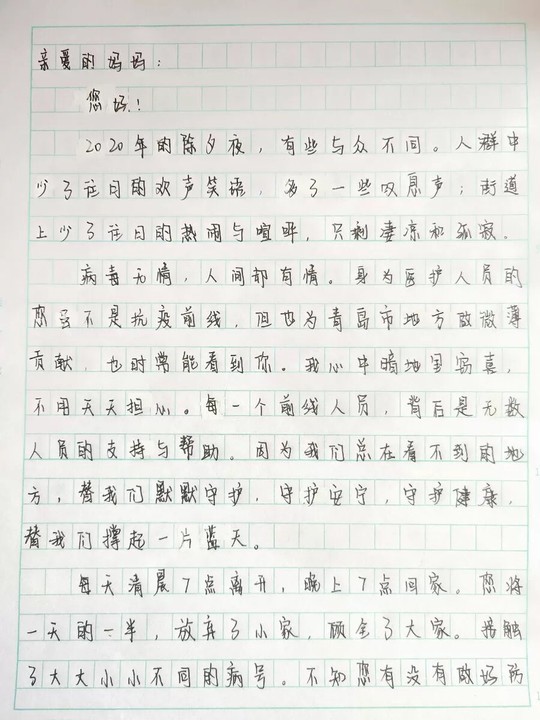 亲爱的妈妈:
您好!
2020年的除夕夜,有些与众不同。人群中
少了往日的欢声笑语,多了一些叹息声;街道
上少了往日的热闹与喧哗,只剩凄凉和孤寂。
病毒无情,人间却有情。身为医护人员的
您虽不是抗疫前线,但也为青岛市地方做微薄
贡献,也时常能看到你。我心中暗地里窃喜,
不用天天担心。每一个前线人员,背后是无数
人员的支持与帮助。因为我们总在看不到的地
方,替我们默默守护,守护安宁,守护健康,
替我们撑起一片蓝天。
每天清晨7点离开,晚上7点回家。您将
一天的一半,放弃了小家,顾全了大家。接触
了大大小小不同的病号。不知您有没有做好防